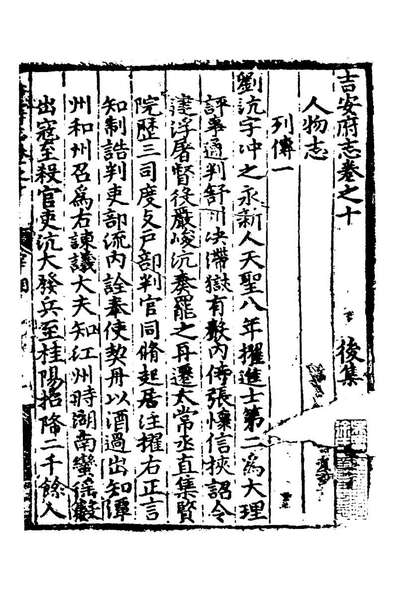 吉安府志卷之十 後集
人物志
列傳一
劉沆字冲之永新人天聖八年擢進士第二爲大理
評事通判舒州决滯獄有數內侍張懷信挾詔令
建浮屠督役嚴峻沆奏罷之再遷太常丞直集賢
院歷三司度支戶部判官同脩起居注擢右正言
知制誥判吏部流內詮奉使契丹以酒過出知潭
州和州召爲右諫議大夫知江州時湖南蠻徭數
出寇至殺官吏沆大發兵至桂陽招降二千餘人